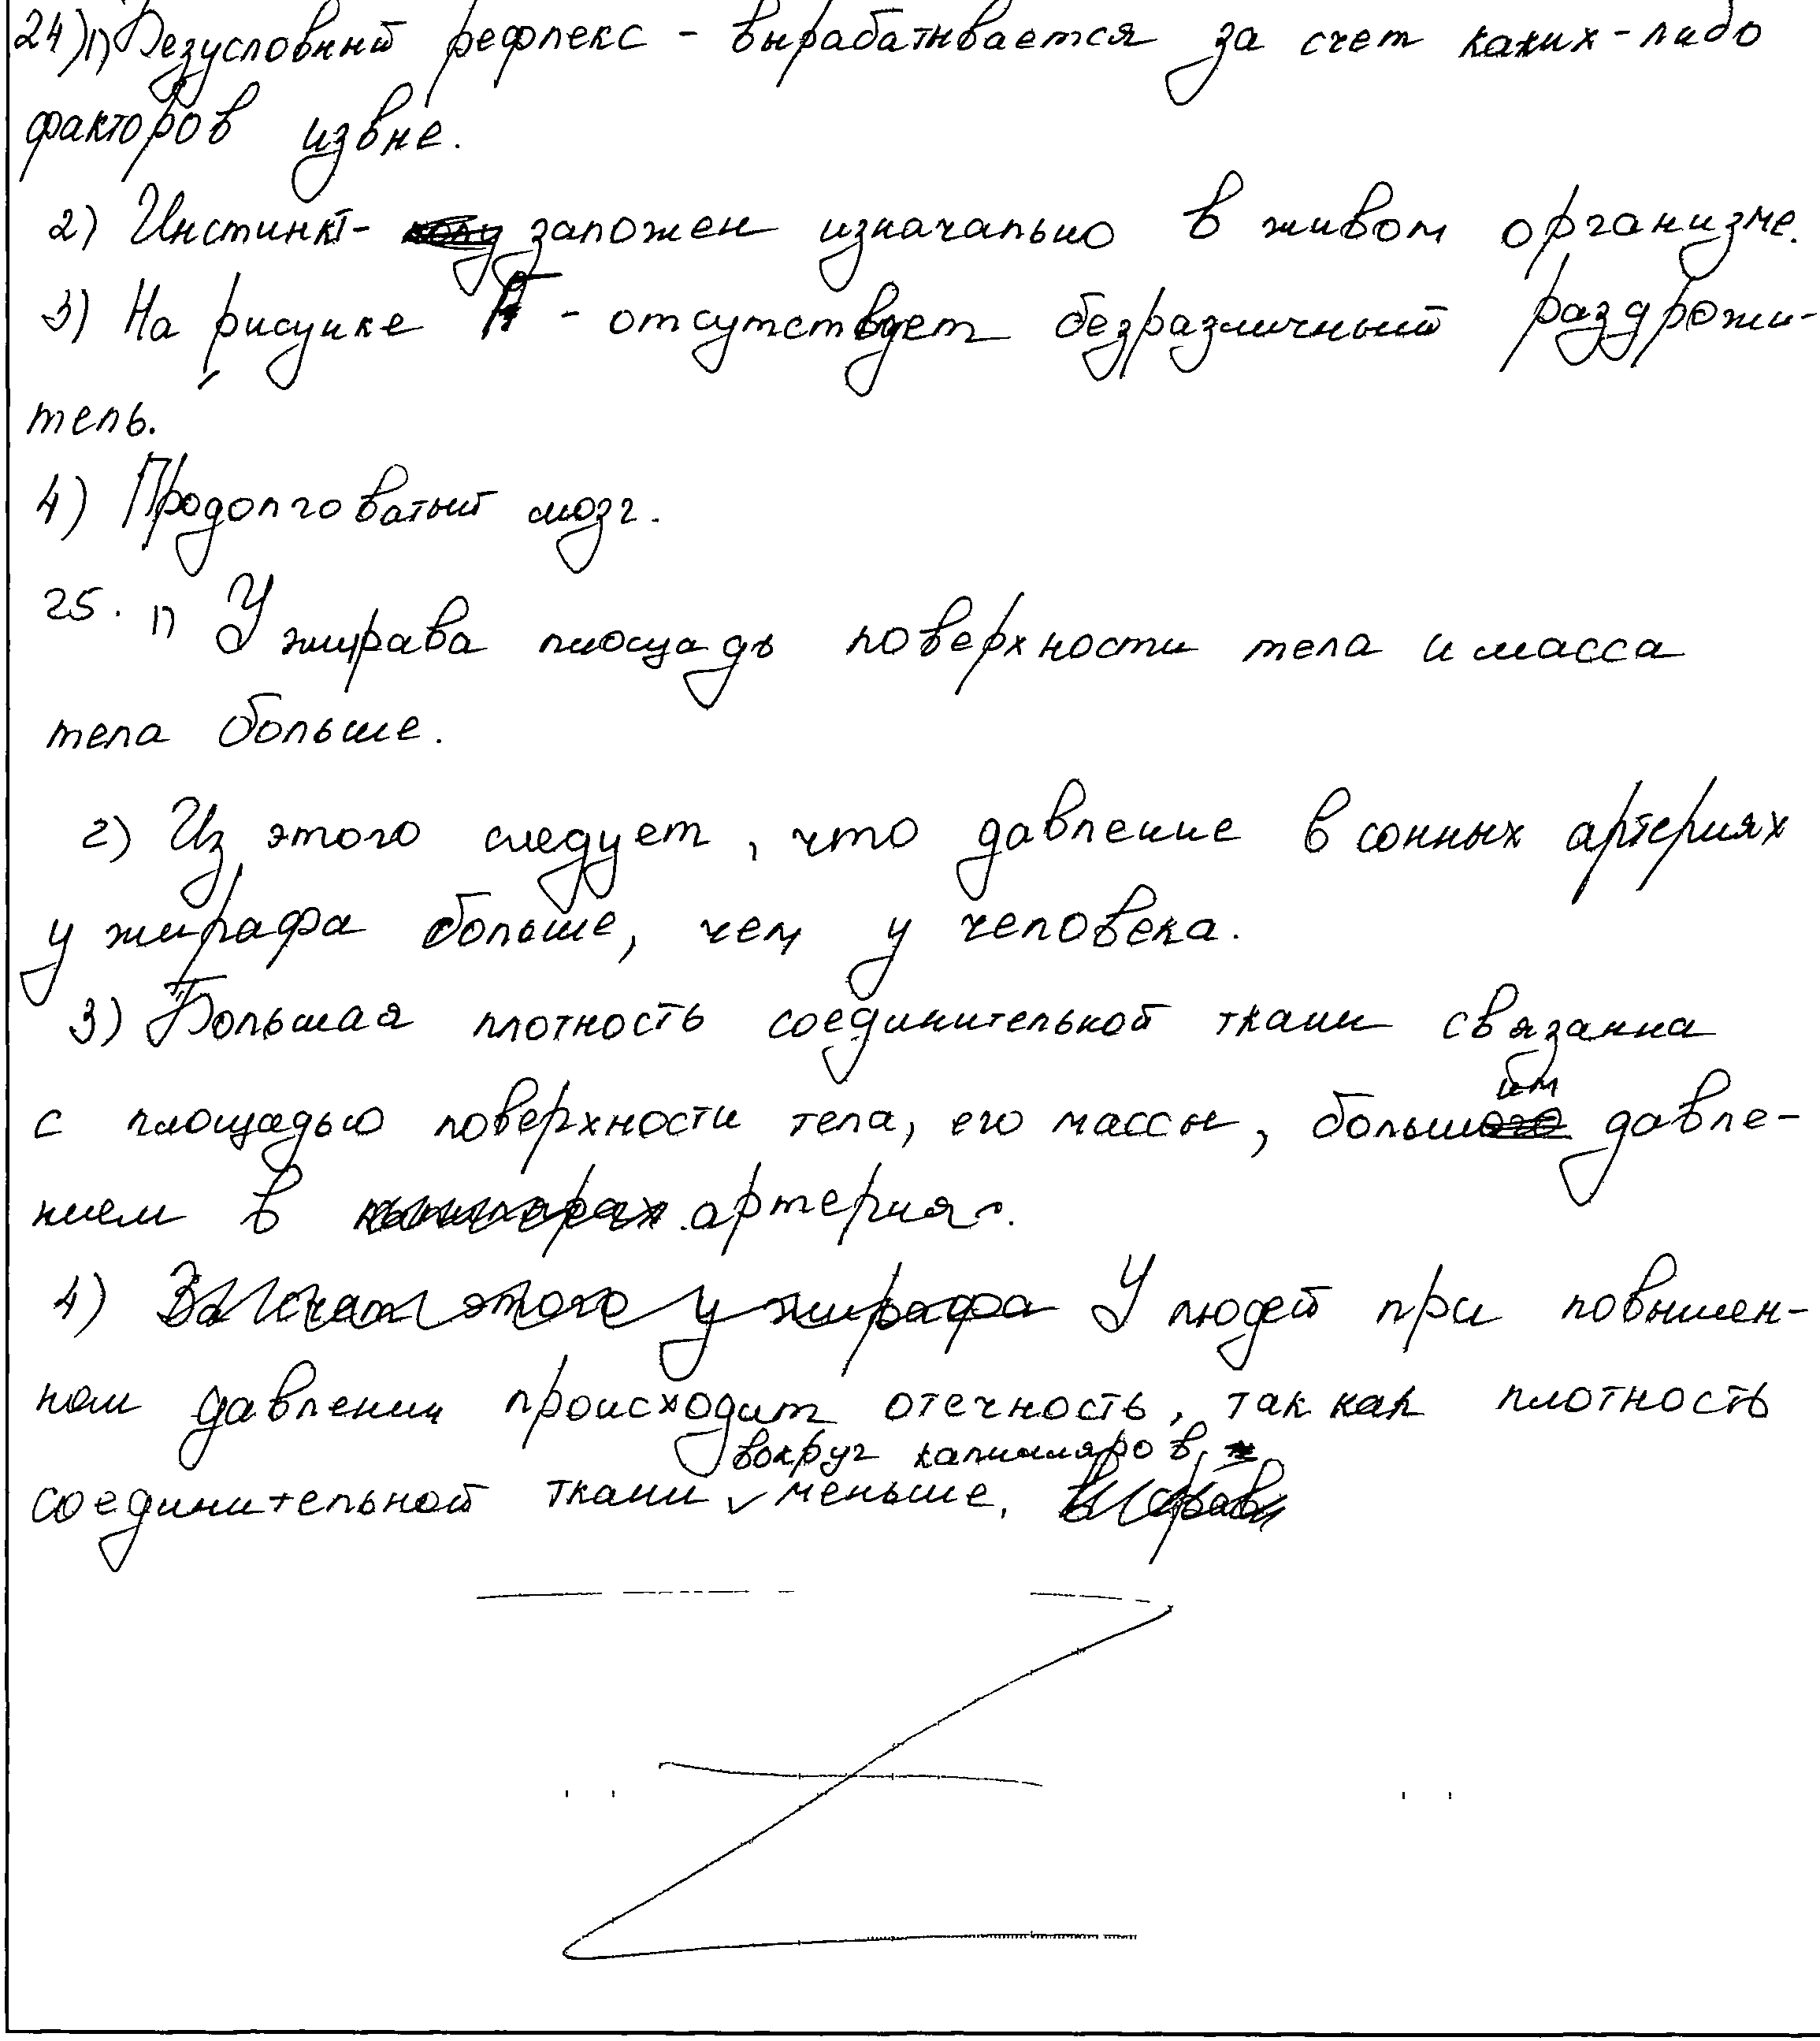 24) 1) Безусловный рефлекс - вырабатывается за счет каких-либо
факторов извне.
2) Инстинкт- заложен изначально в живом организме.
3) На рисунке - отсутствует безразличный раздрожи-
тель.
4) Продолговатый мозг.
25. 1) У жирава площадь поверхности тела и масса
тела больше.
2) Из этого следует, что давление в сонных артериях
у жирафа больше, чем у человека.
3) Большая плотность соединительной ткани связанна
с площадью поверхности тела, его массы, большим давле-
нием в артериях.
4) За счет этого у жирафа У людей при повышен-
ном давлении происходит отечность, так как плотность
вокруг капилляров,
соединительной ткани ✓ меньше,